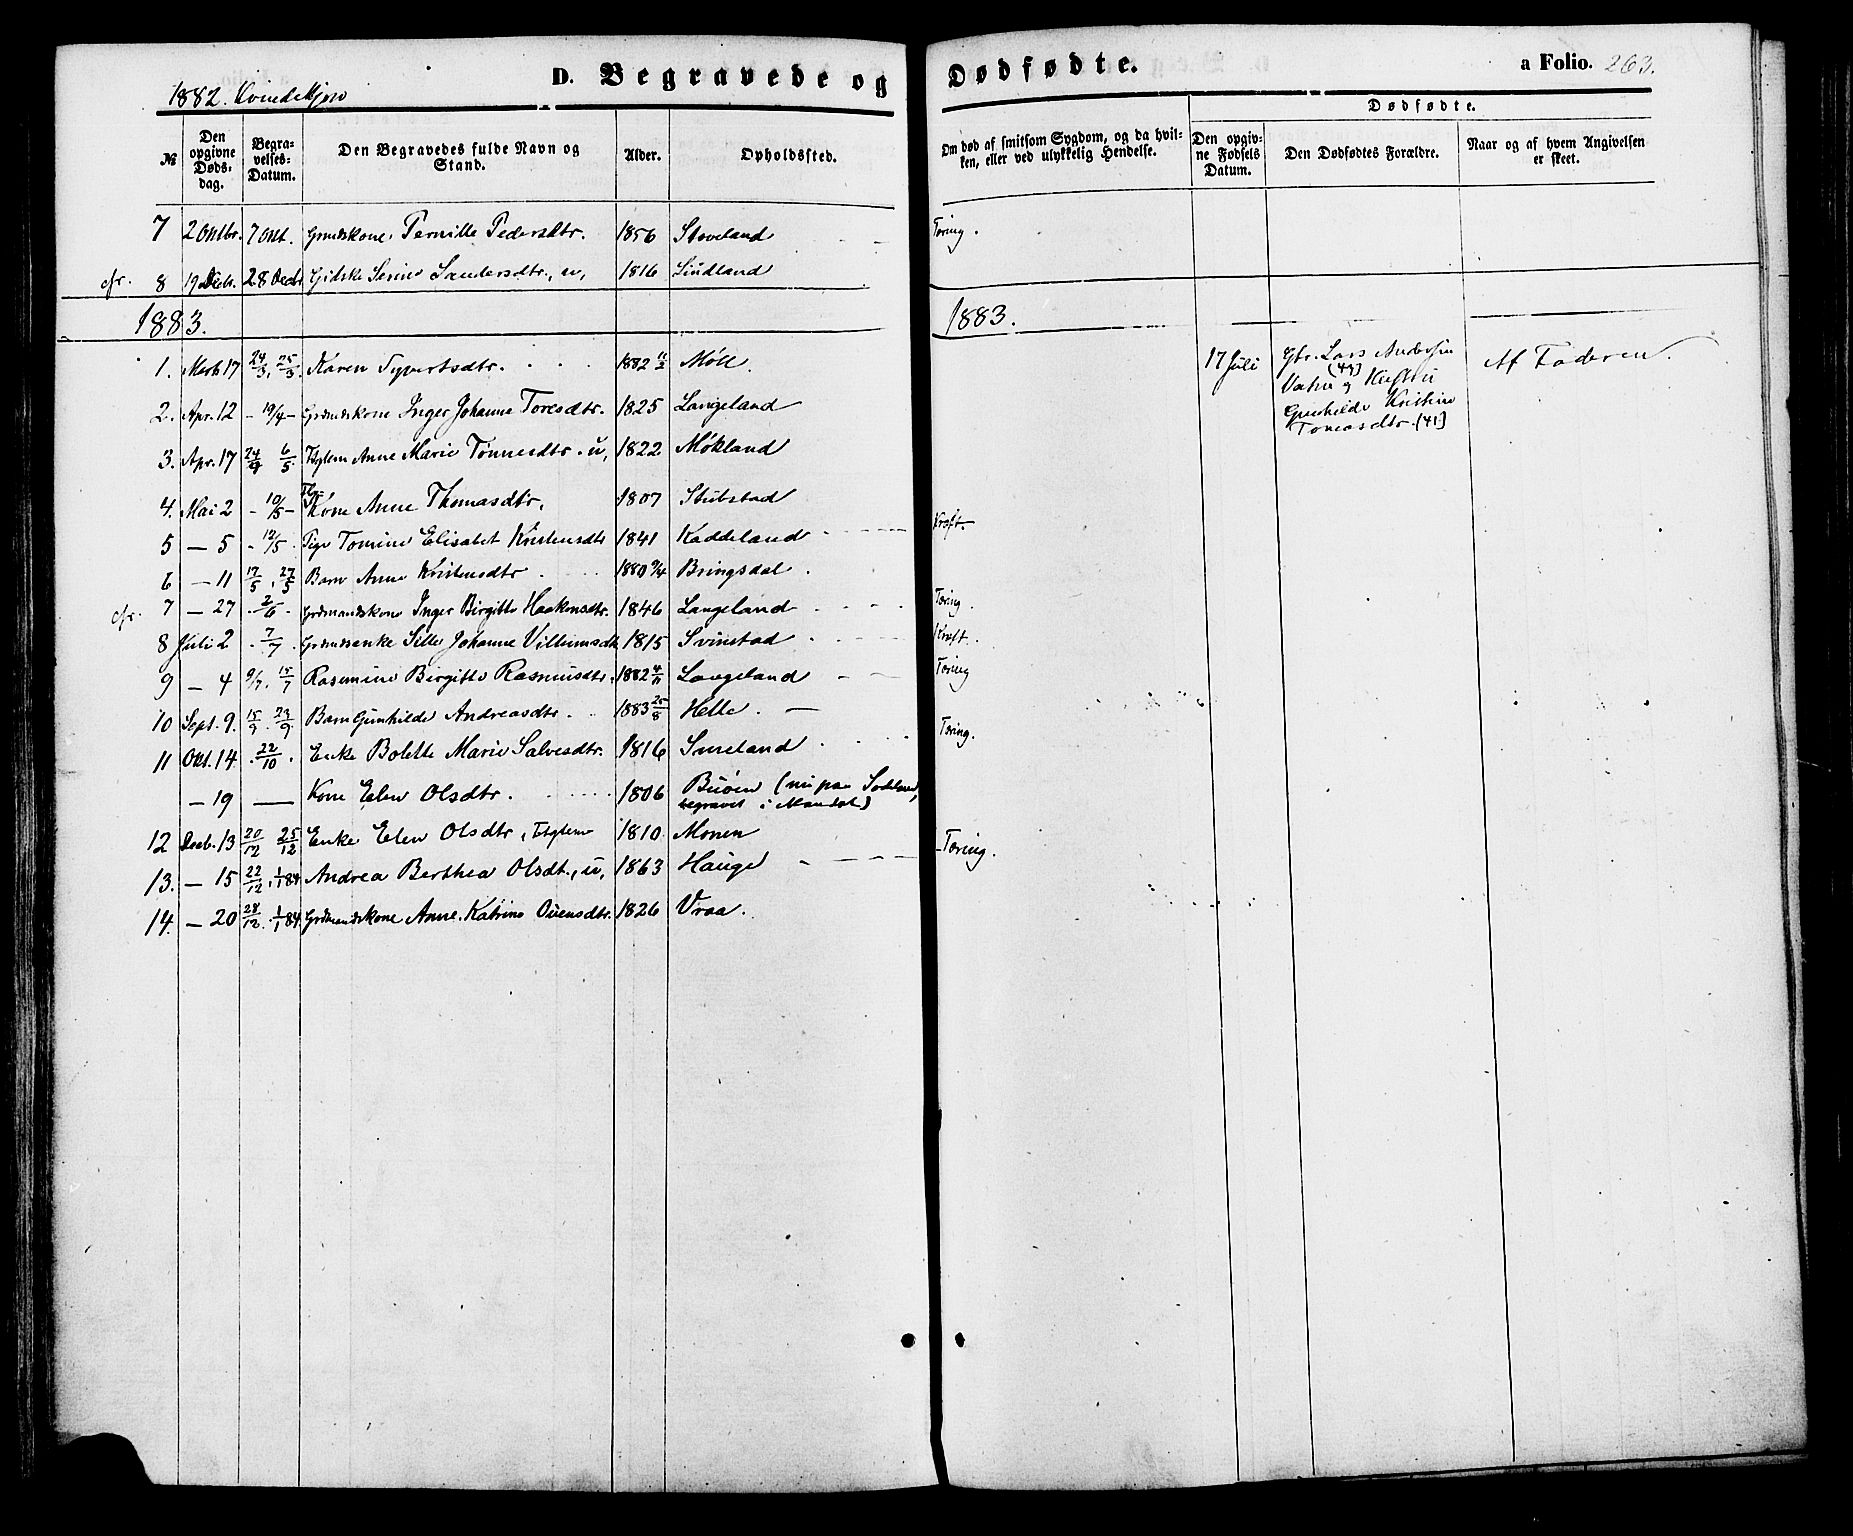 1882. Kvindekjøn
D. Begravede og
№
Den opgivne Døds-dag.
Begra-velses-Datum.
Den Begravedes fulde Navn og Stand.
Alder.
Opholdssted.
7 2 Oktbr. 7 Okt. Grmdskone Pernille Pedersdtr. 1856 Stoveland
cfr. 8 19 Decbr. 28 Decbr Gidske Serine Sandersdtr., u, 1816 Lindland
1883.
1. Marts 17 24/3, 25/3. Karen Syvertsdtr. 1882 11/2 Møll
2. Apr. 12 - 19/4 - Grdmdskone Inger Johanne Toresdtr. 1825 Langeland
3. Apr. 17 24/4 6/5 Fstglem Anne Marie Tønnesdtr. u, 1822 Møkland
4. Mai 2 - 10/5 - Kone Anne Thomasdtr, 1807 Stubstad
5 — 5 - 12/5 . Pige Tomine Elisabet Kristensdtr 1841 Kaddeland
6 — 11 17/5, 27/5 Barn Anne Kristensdtr 1880 9/4 Bringsdal
cfr. 7 — 27 . 2/6 . Grdmandskone Inger Birgitte Haakonsdtr. 1846 Langeland
8 Juli 2 . 7/7 . Grdmdsenke Sille Johanne Villumsdtr 1815 Svinstad
9 — 4 9/7. 15/7 Rasmine Birgitte Rasmusdtr. 1882 4/11 Langeland
10 Sept. 9. 15/9. 23/9 Barn Gunhilde Andreasdtr. 1883 25/8 Helle. —
11 Okt. 14 . 22/10 . Enke Bolette Marie Salvesdtr. 1816 Sureland
— 19 — Kone Elen Olsdtr. 1806 Buøen (nu paa
begravet i Mandal)
12 Decb. 13 20/12 25/12 Enke Elen Olsdtr, Fstglem 1810 Monen
13. — 15 22/12, 1/1 84 Andrea Berthea Olsdt., u, 1863 Hauge
14. — 20 28/12. 1/1 84 Grdmandskone Anne Katrine Ouensdtr. 1826 Vraa.
Dødfødte.
a Folio. 263.
Om død af smitsom Sygdom, og da hvil-
ken, eller ved ulykkelig Hendelse.
Dødfødte.
Den opgiv-ne Fødsels Datum.
Den Dødfødtes Forældre.
Naar og af hvem Angivelsen er skeet.
Tæring.
1883.
17 Juli Gbr. Lars Andersen Af Faderen.
(44)
Vatne og Kustru
Gunhilde Kristine
Tomasdtr. (41)
Kræft.
Tæring.
Kræft.
Tæring
Tæring.
Tæring.